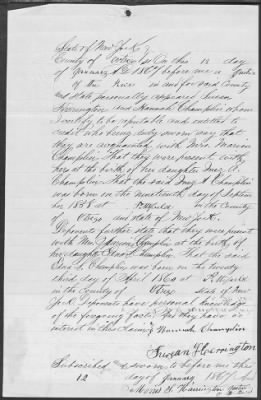 State of New York
County of Otsego On this 12 day
of January A D 1867 before me a Justice
of the Peace in and for said County
and State personally appeared Susan
Herrington and Hannah Champlin whom
I certify to be reputable and entitled to
credit who being duly sworn say that
they are acquainted with Mrs. Marion
Champlin That they were present with
her at the birth of her daughter Inez A.
Champlin That the said Inez A Champlin
was born on the nineteenth day of Septem
ber 1858 at in the County
of Otsego and state of New York.
Deponents further state that they were present
with Mrs Champlin at the birth of
her daughter Champlin That the said
Champlin was born on the twenty
third day of April 1860 at
in the County of Otsego State of New
York Deponents have personal knowledge
of the foregoing facts and they have no
interest in this claim Hannah Champlin
Susan Herrington
Subscribed & sworn to before me this
12 day of January 1867
Harrington Justice